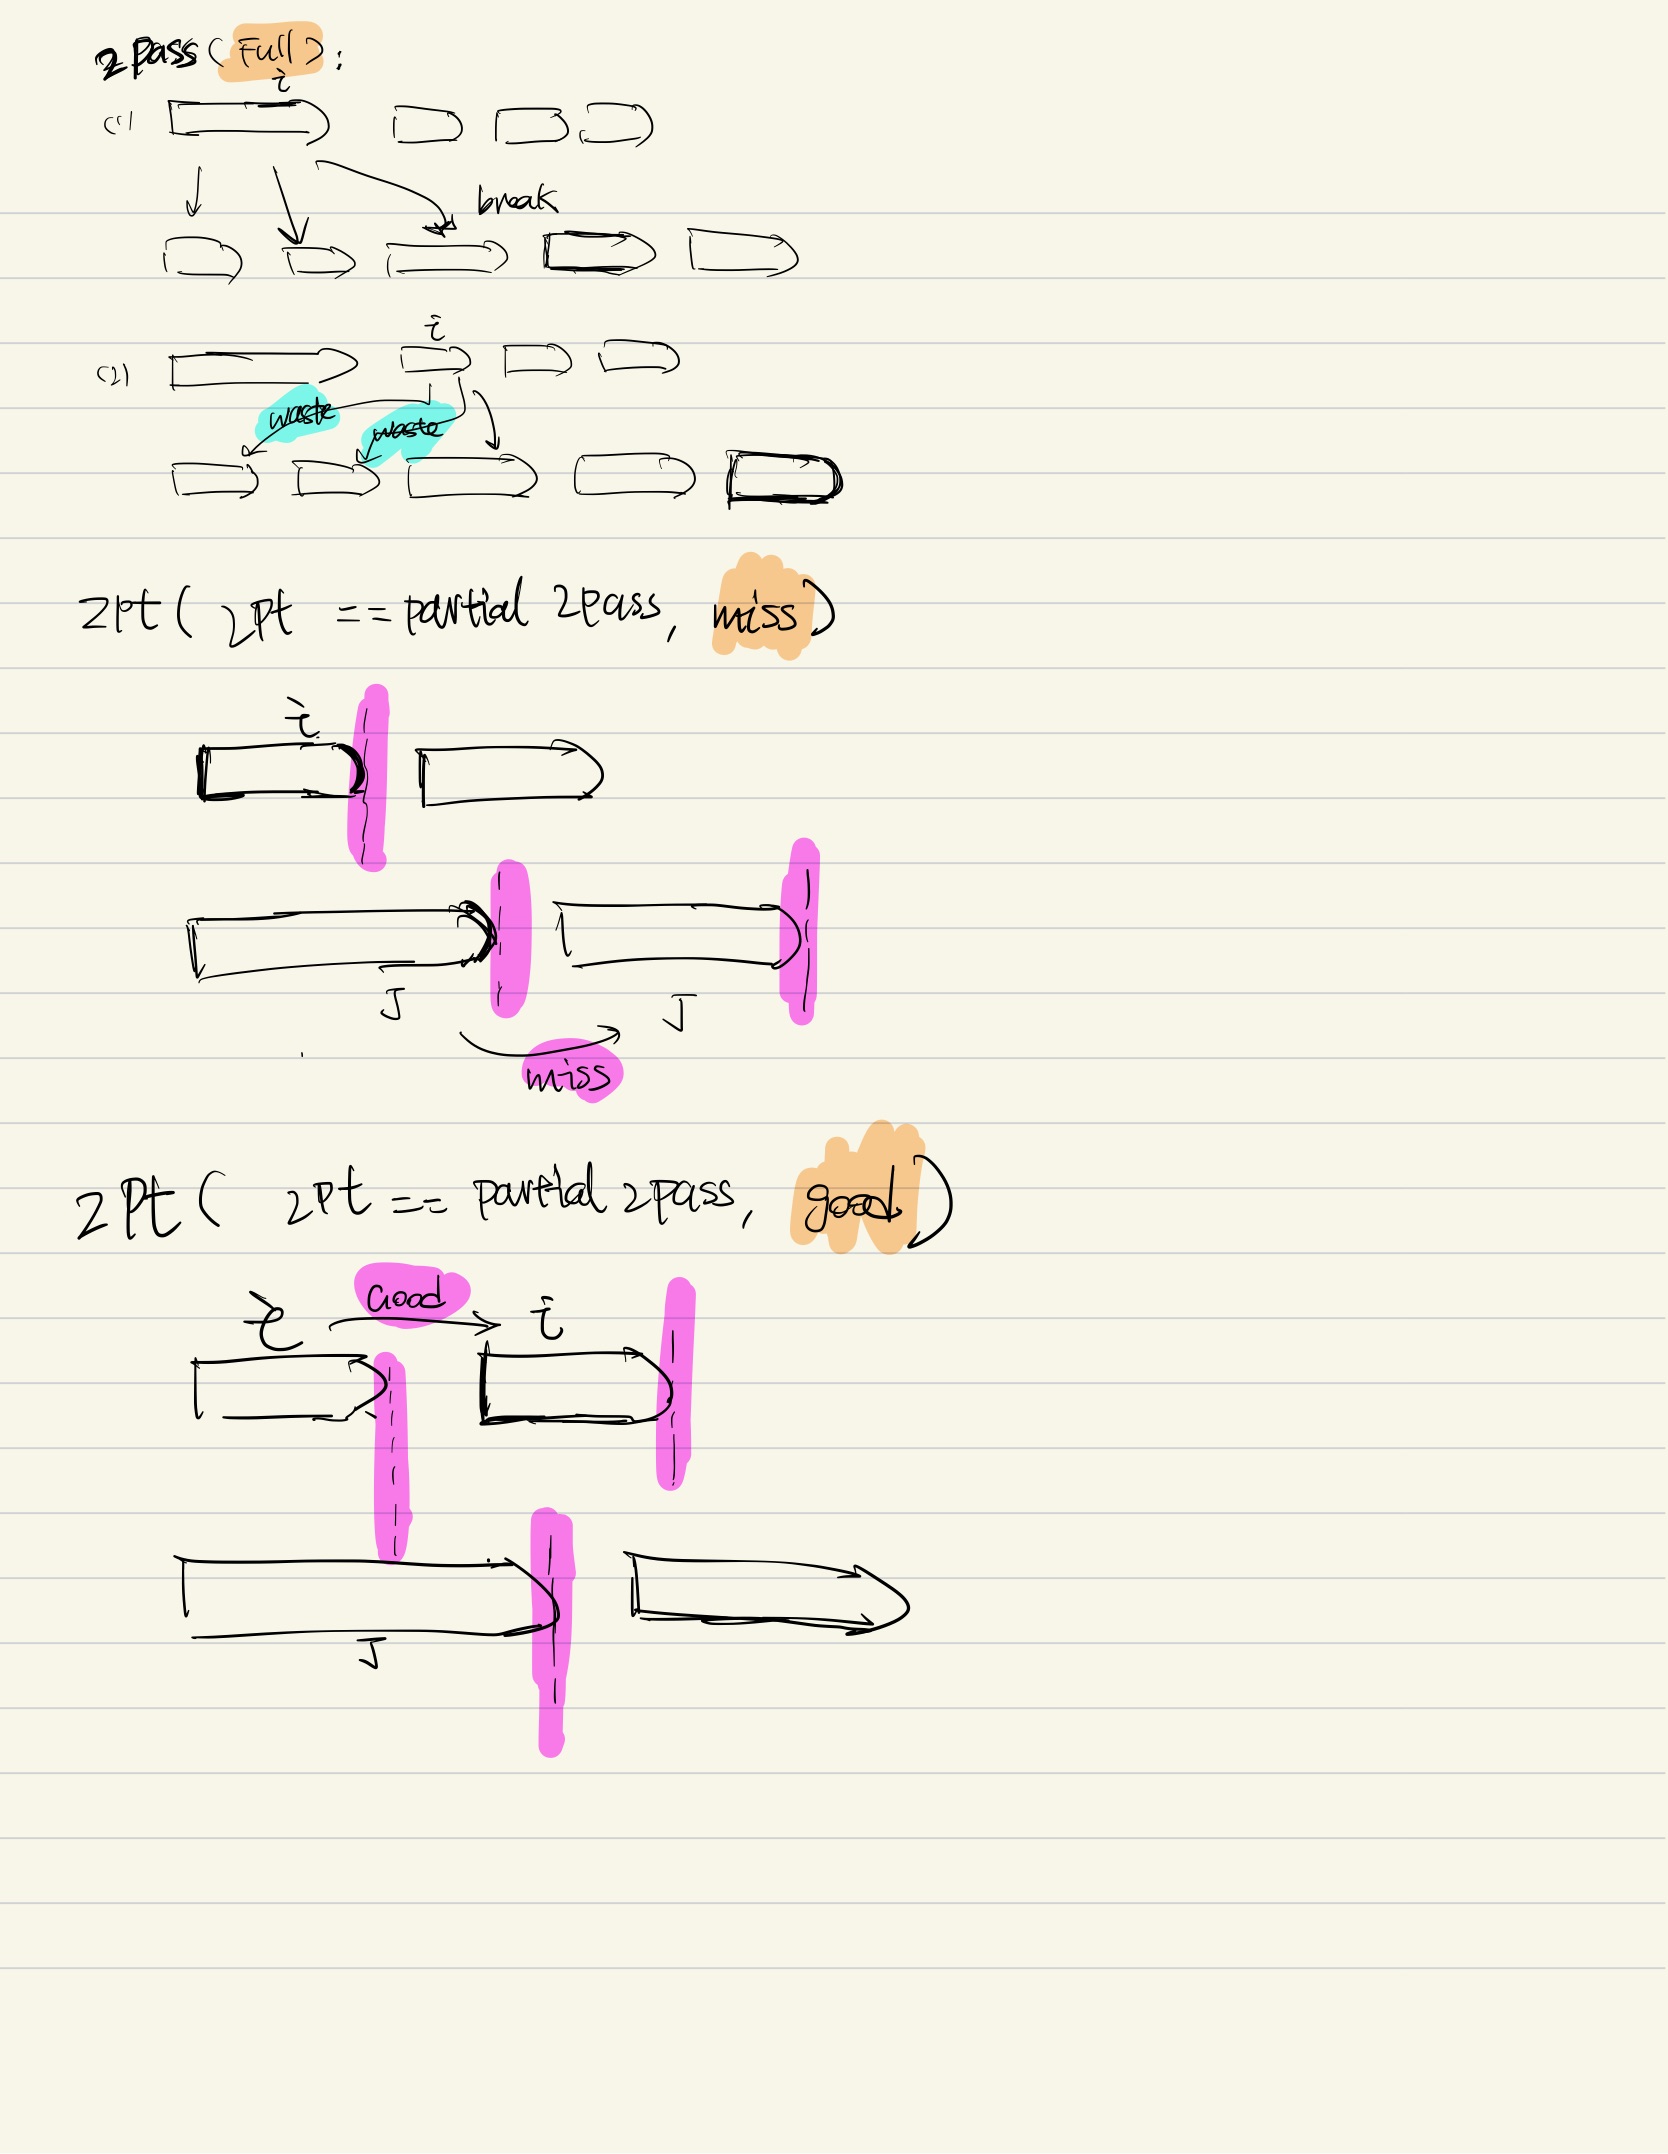 2pass (Full):
i
(1)
break
i
(2)
waste
waste
2pt ( 2pt == partial 2pass, miss)
i
J
J
miss
2pt ( 2pt == partial 2pass, good)
Good
i
i
J